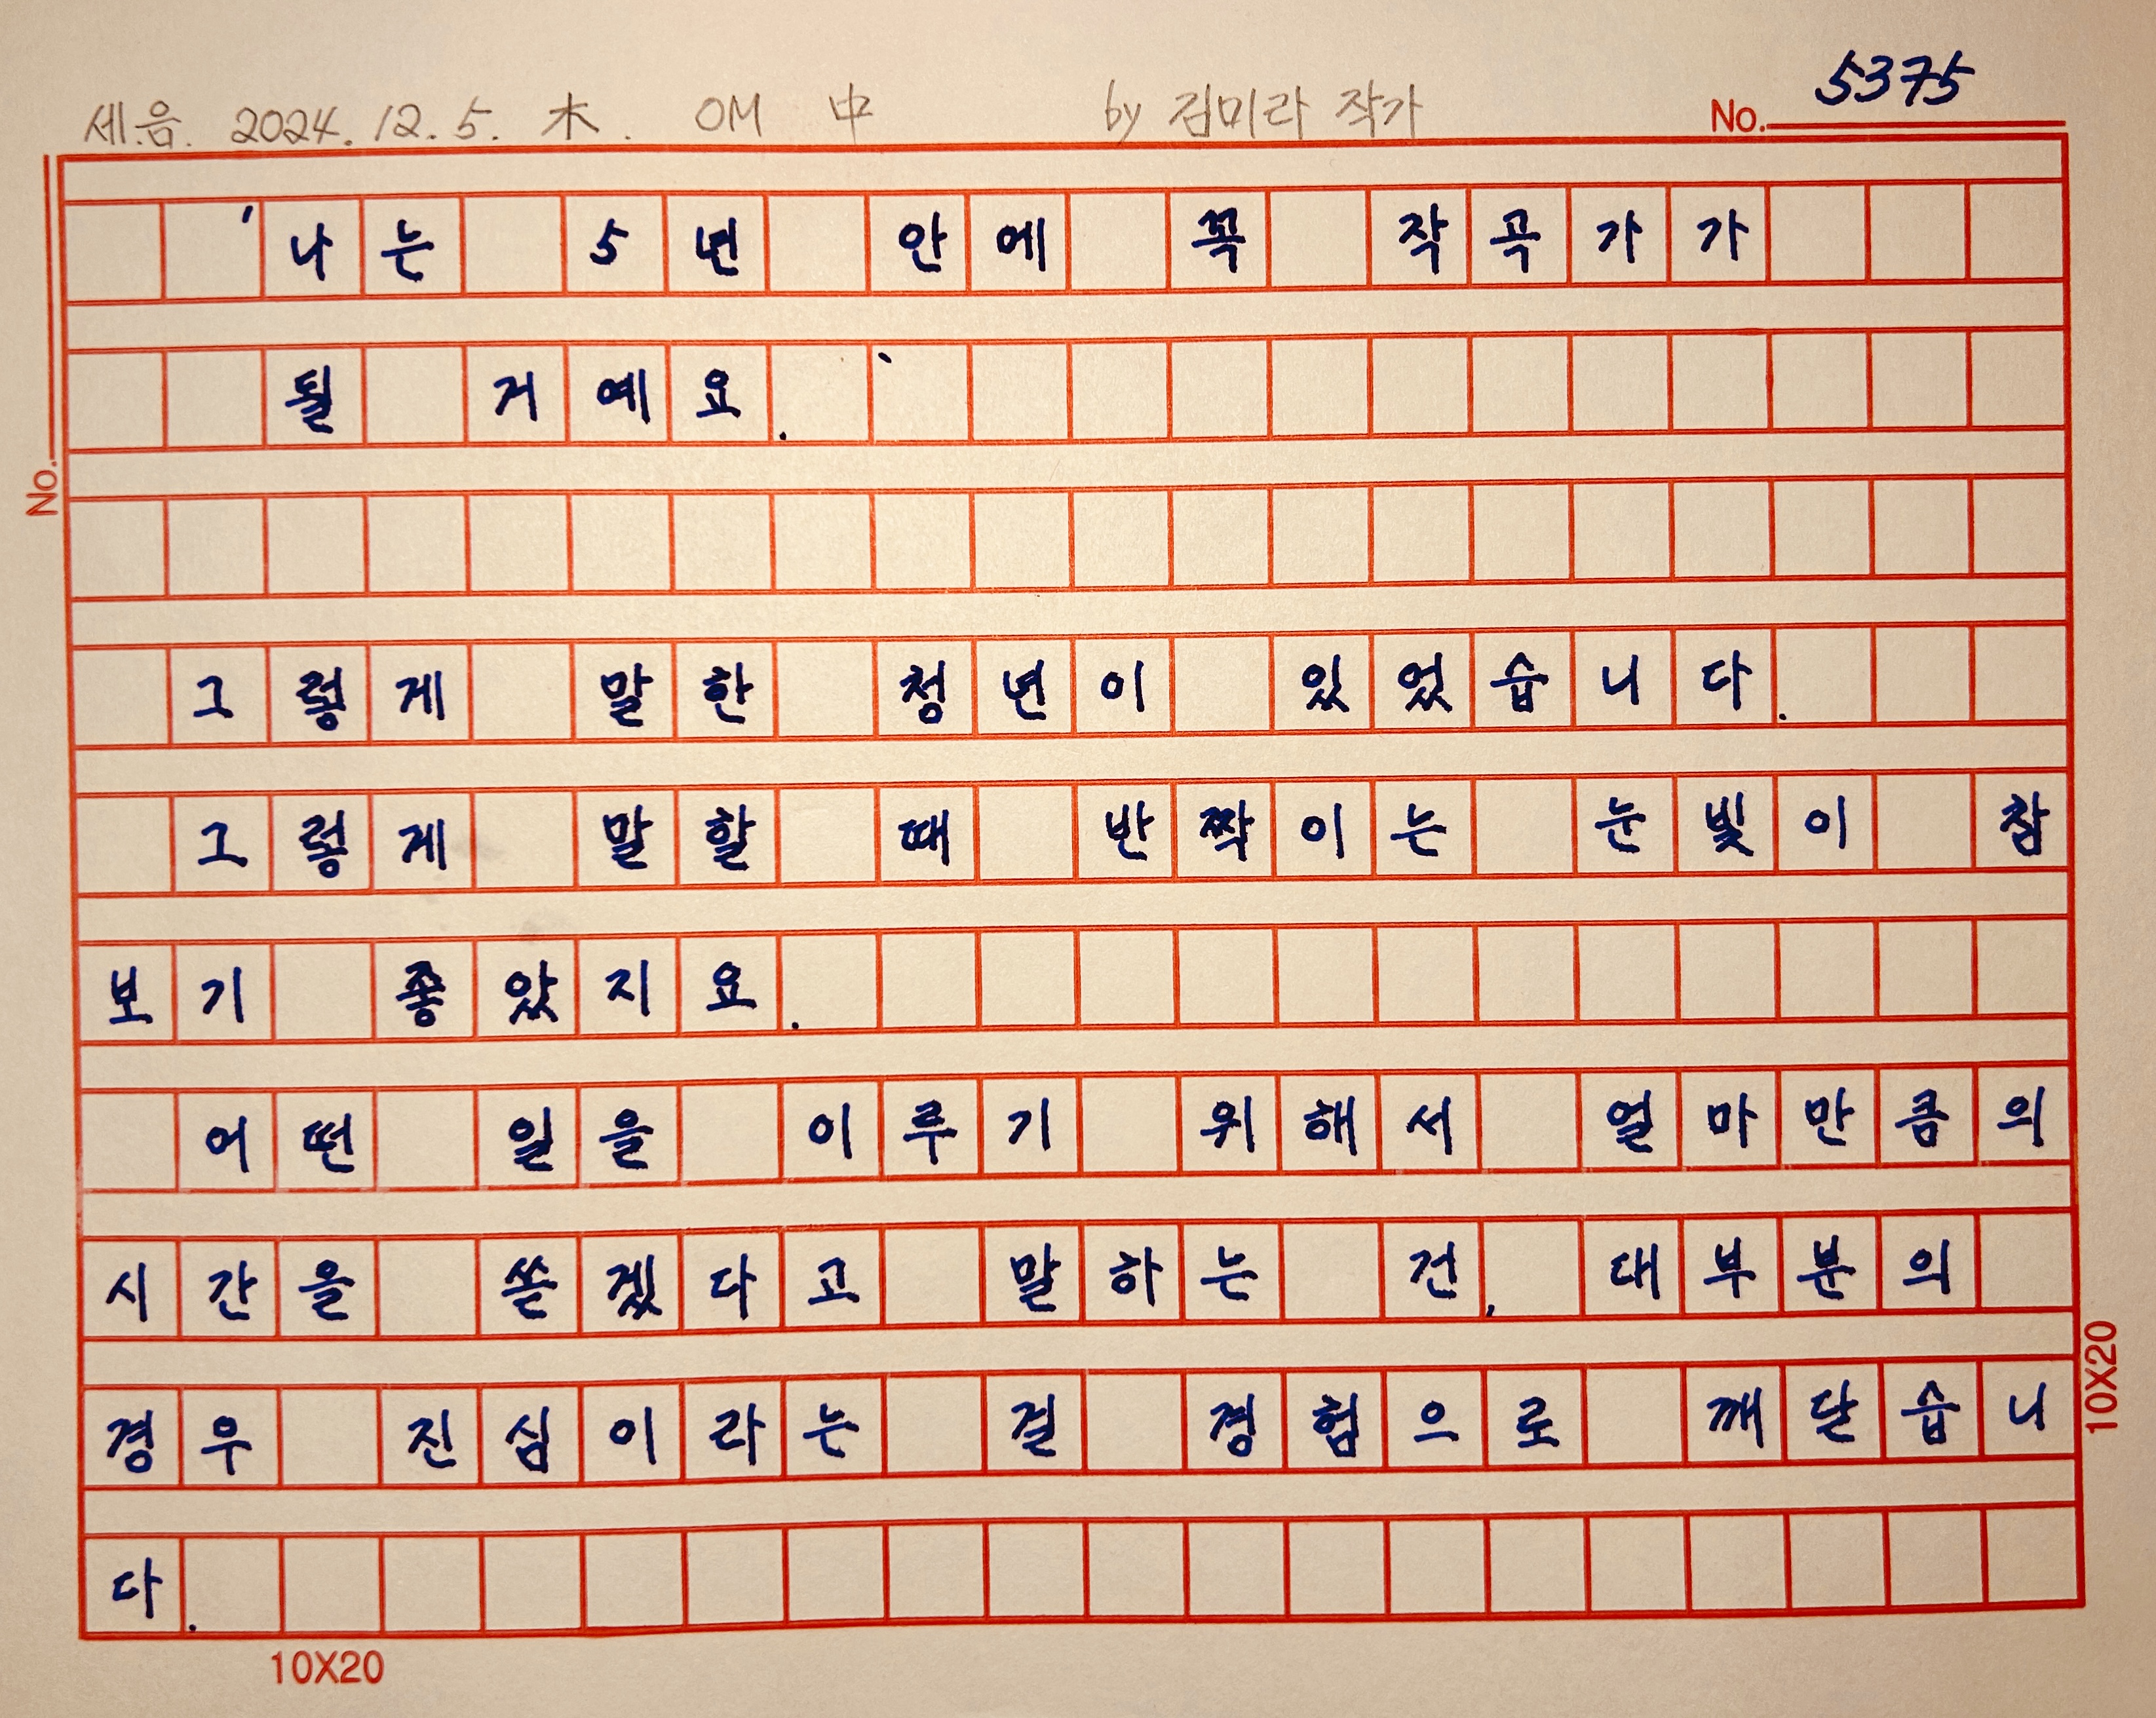 세.음. 2024. 12. 5. 木. OM 中 by 김미라 작가
No. 5375
'나는 5년 안에 꼭 작곡가가
될 거예요.'
그렇게 말한 청년이 있었습니다.
그렇게 말할 때 반짝이는 눈빛이 참
보기 좋았지요.
어떤 일을 이루기 위해서 얼마만큼의
시간을 쏟겠다고 말하는 건, 대부분의
경우 진심이라는 걸 경험으로 깨닫습니
다.
No.
10X20
10X20